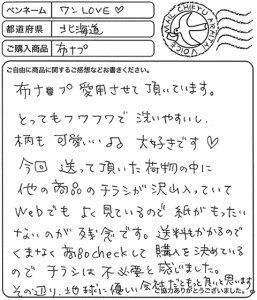 ペンネーム ワンLOVE♡
都道府県 北海道
ご購入商品 布ナプ
ご自由に商品に関するご感想などお書きください。
布ナプ 愛用させて 頂いています。
とってもフワフワで 洗いやすいし、
柄も 可愛い♪♪ 大好きです♡
今回 送って頂いた 荷物の中に
他の商品のチラシが 沢山入っていて
Webでも よく見ているので 紙がもったい
ないのが 残念です。送料もかかるので
くまなく 商品checkして 購入を決めている
ので チラシは 不必要と 感じました。
その辺り、地球に 優しい 会社だともっと良いと思います。
ご協力ありがとうございました。